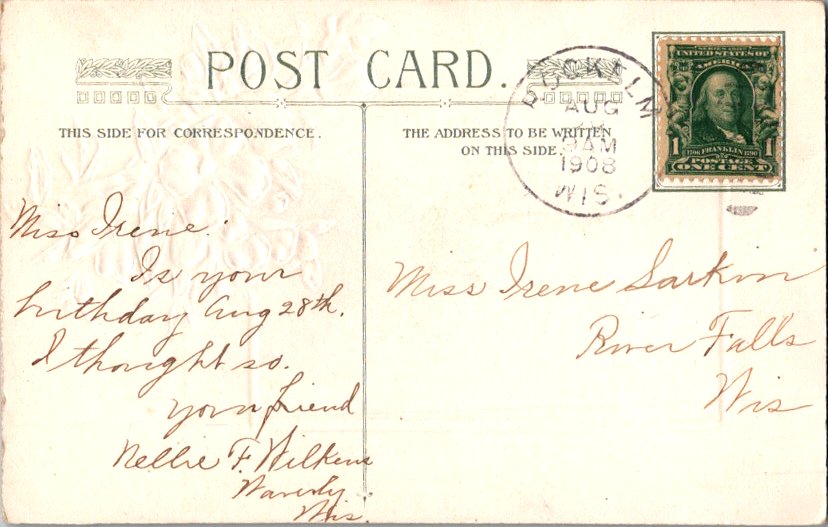 POST CARD.
THIS SIDE FOR CORRESPONDENCE.
THE ADDRESS TO BE WRITTEN
ON THIS SIDE.
AUG
AM
1908
WIS.
SERIES 1902
UNITED STATES OF
AMERICA
1 1706 FRANKLIN 1790 1
POSTAGE
ONE CENT
Miss Irene.
Is your
birthday Aug 28th.
I thought so.
your friend
Nellie F. Wilkens
Waverly
Wis.
Miss Irene Larkom
River Falls
Wis